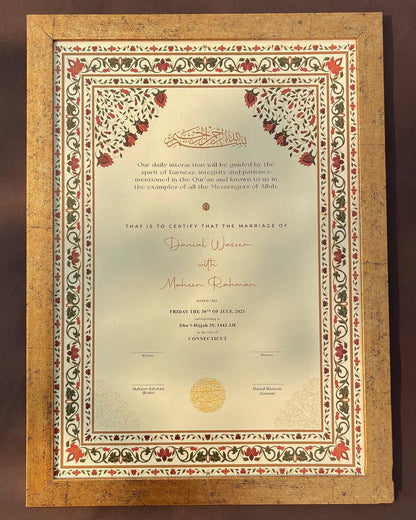 بسم الله الرحمن الرحيم
Our daily interaction will be guided by the
spirit of fairness, integrity and patience
mentioned in the Qur'an and known to us in
the examples of all the Messengers of Allah.
THAT IS TO CERTIFY THAT THE MARRIAGE OF
Danial Waseem
with
Maheen Rahman
FRIDAY THE 30TH OF JULY, 2021
corresponding to
Dhu'l-Hijjah 20, 1442 AH
in the state of
CONNECTICUT
Witness
Witness
Maheen Rahman
(Bride)
Danial Waseem
(Groom)